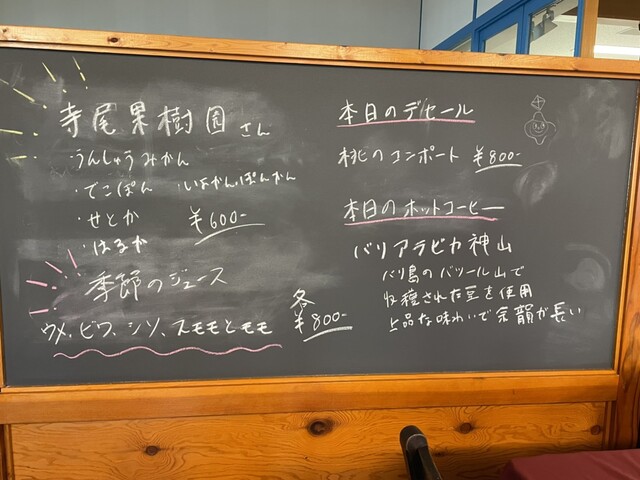 寺尾果樹園さん
・うんしゅうみかん
・でこぽん ・いよかん・ぽんかん
・せとか ¥600-
・はるか
季節のジュース
ウメ、ビワ、シソ、スモモとモモ 各¥800-
本日のデセール
桃のコンポート ¥800-
本日のホットコーヒー
バリアラビカ神山
バリ島のバツール山で
収穫された豆を使用
上品な味わいで余韻が長い